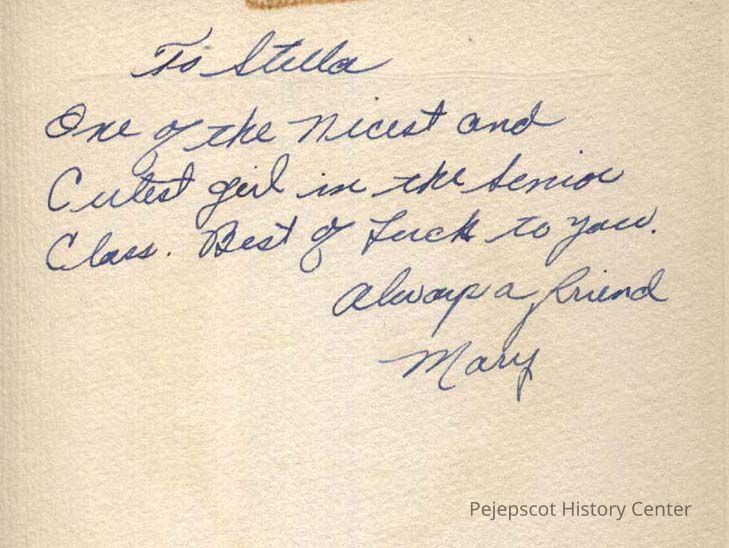 To Stella
One of the Nicest and
Cutest girl in the Senior
Class. Best of Luck to you.
Always a friend
Mary
Pejepscot History Center